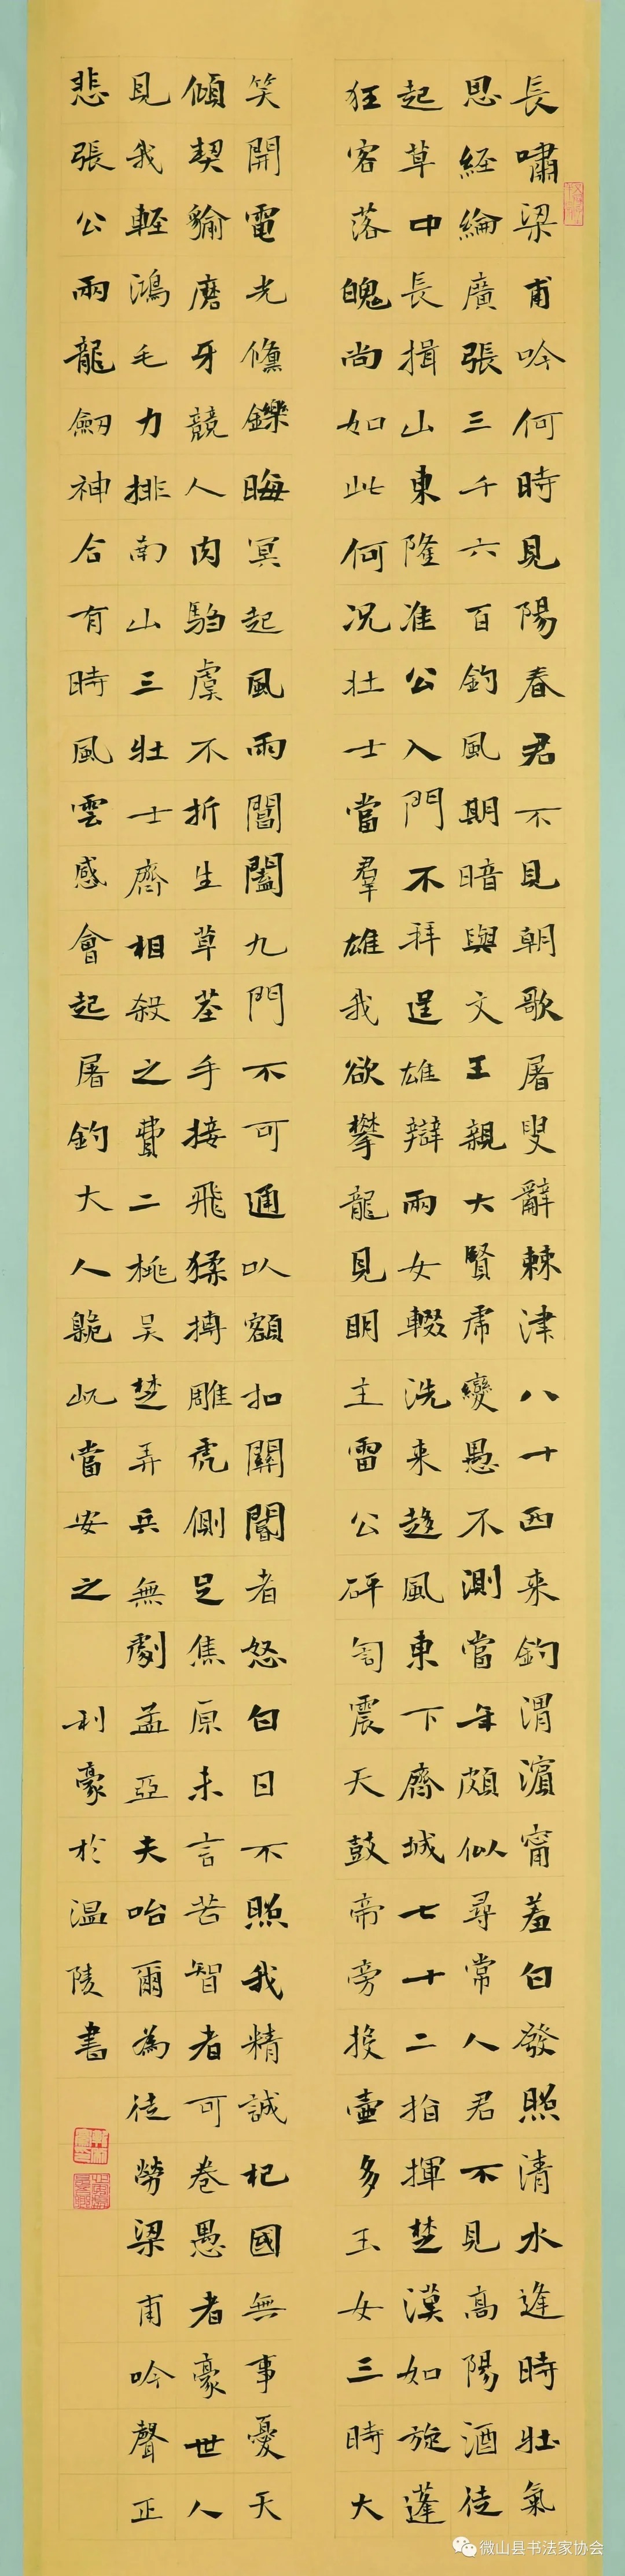 長嘯梁甫吟何時見陽春君不見朝歌屠叟辭棘津八十西来釣渭濱甯羞白發照清水逢時壯氣
思経綸廣張三千六百釣風期暗與文王親大賢虎變愚不測當年頗似尋常人君不見高陽酒徒
起草中長揖山東隆准公入門不拜逞雄辯兩女輟洗来趍風東下齊城七十二指揮楚漢如旋蓬
狂客落魄尚如此何况壯士當羣雄我欲攀龍見明主雷公砰訇震天鼓帝旁投壺多玉女三時大
笑開電光儵鑠晦冥起風雨閶闔九門不可通以額扣關閽者怒白日不照我精誠杞國無事憂天
傾契貐磨牙競人肉騶虞不折生草莖手接飛猱搏雕虎側足焦原未言苦智者可卷愚者豪世人
見我輕鴻毛力排南山三壯士齊相殺之費二桃吴楚弄兵無劇孟亞夫咍爾為徒勞梁甫吟聲正
悲張公兩龍劍神合有時風雲感會起屠釣大人臲屼當安之 利豪於温陵書
微山县书法家协会